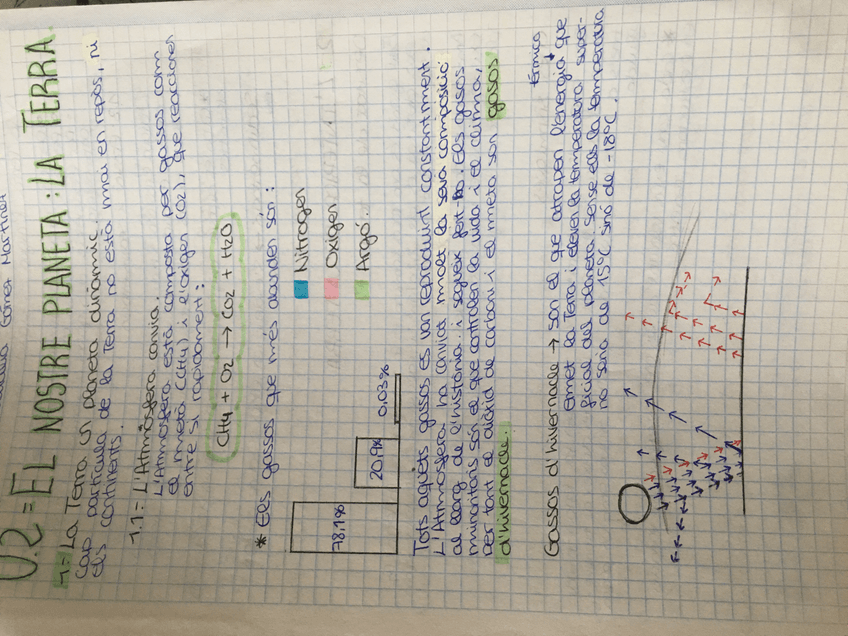 Gómez Martínez
U.2 = EL NOSTRE PLANETA : LA TERRA.
1= La Terra, un planeta dinàmic.
Cap partícula de la Terra no està mai en repòs, ni
els continents.
1.1= L'Atmòsfera canvia.
L'Atmosfera està composta per gassos com
el metà (CH4) i l'oxigen (O2), que reaccionen
entre sí rapidament:
CH4 + O2 → CO2 + H2O
* Els gassos que més abunden són:
78.1%
20.9%
0.03%
Nitrogen
Oxigen
Argó.
Tots aquets gassos es van reproduint constantment.
L'Atmosfera ha canviat molt la seva composició
al llarg de l'història i segueix fent-ho. Els gasos
minoritaris són el que controlen la vida i el clima,
per tant el diòxid de carboni i el metà son gasos
d'hivernacle.
tèrmica
Gassos d'hivernacle → són el que atrapen l'energia que
emet la Terra i eleven la temperatura super-
ficial del planeta. Sense ells la temperatura
no seria de 15°C sinó de -18°C.